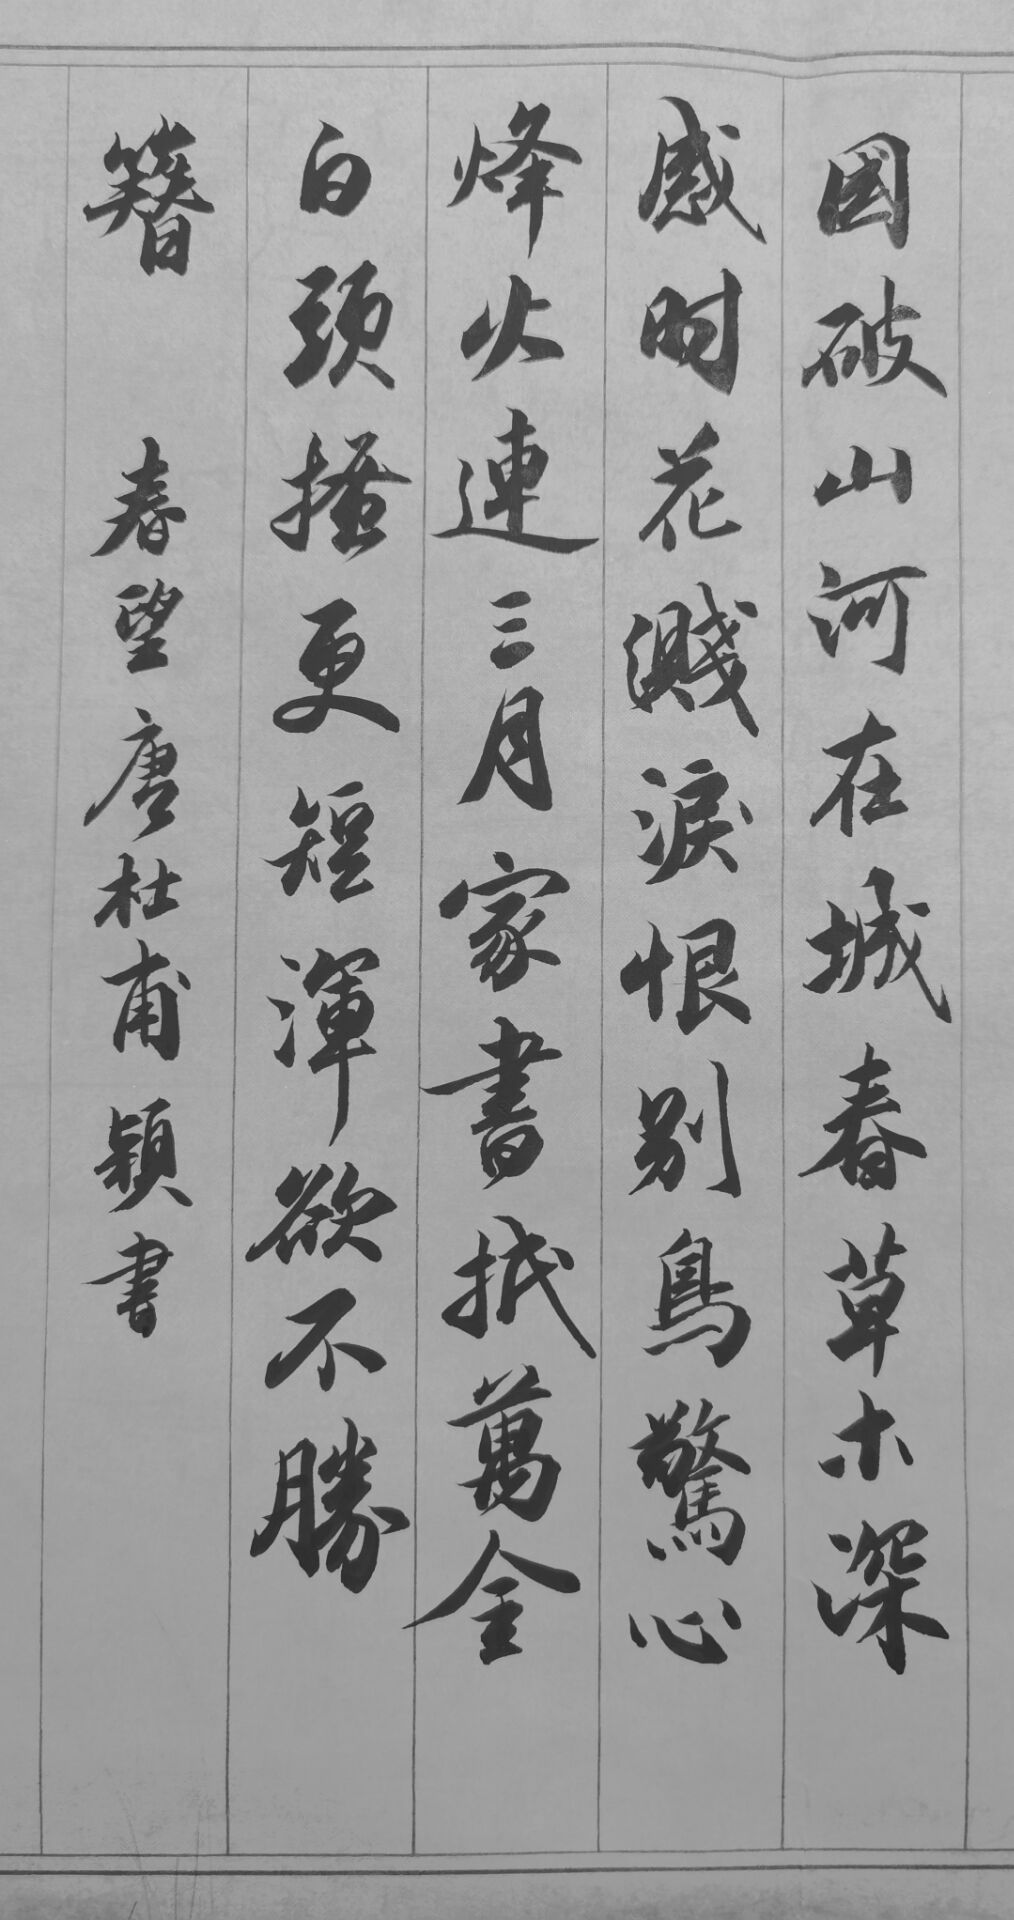 國破山河在城春草木深
感时花濺淚恨别鳥驚心
烽火連三月家書抵萬金
白頭搔更短渾欲不勝
簪 春望唐杜甫穎書